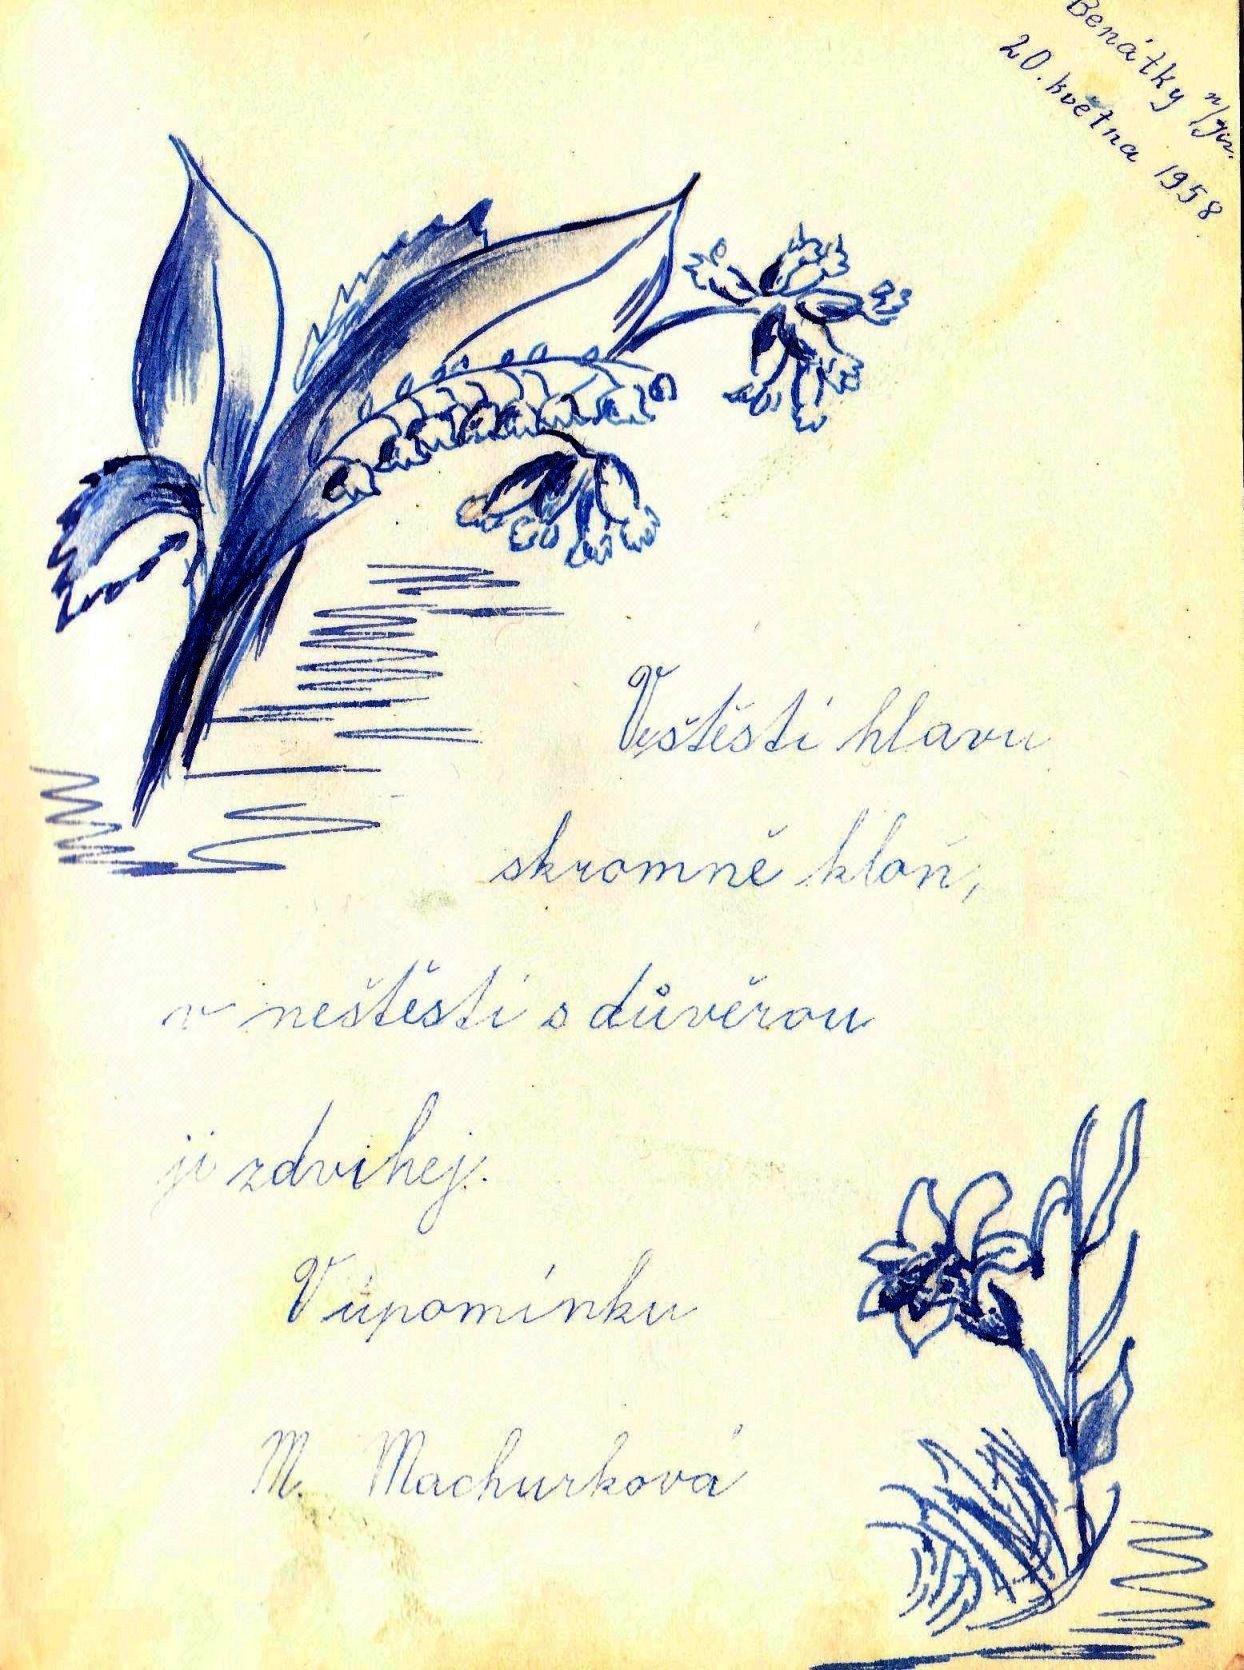 Benátky n/Jiz.
20. května 1958
Veštěstí hlavu
skromně kloň,
v neštěstí s důvěrou
ji zdvihej.
Vúpomínku
M. Machurková